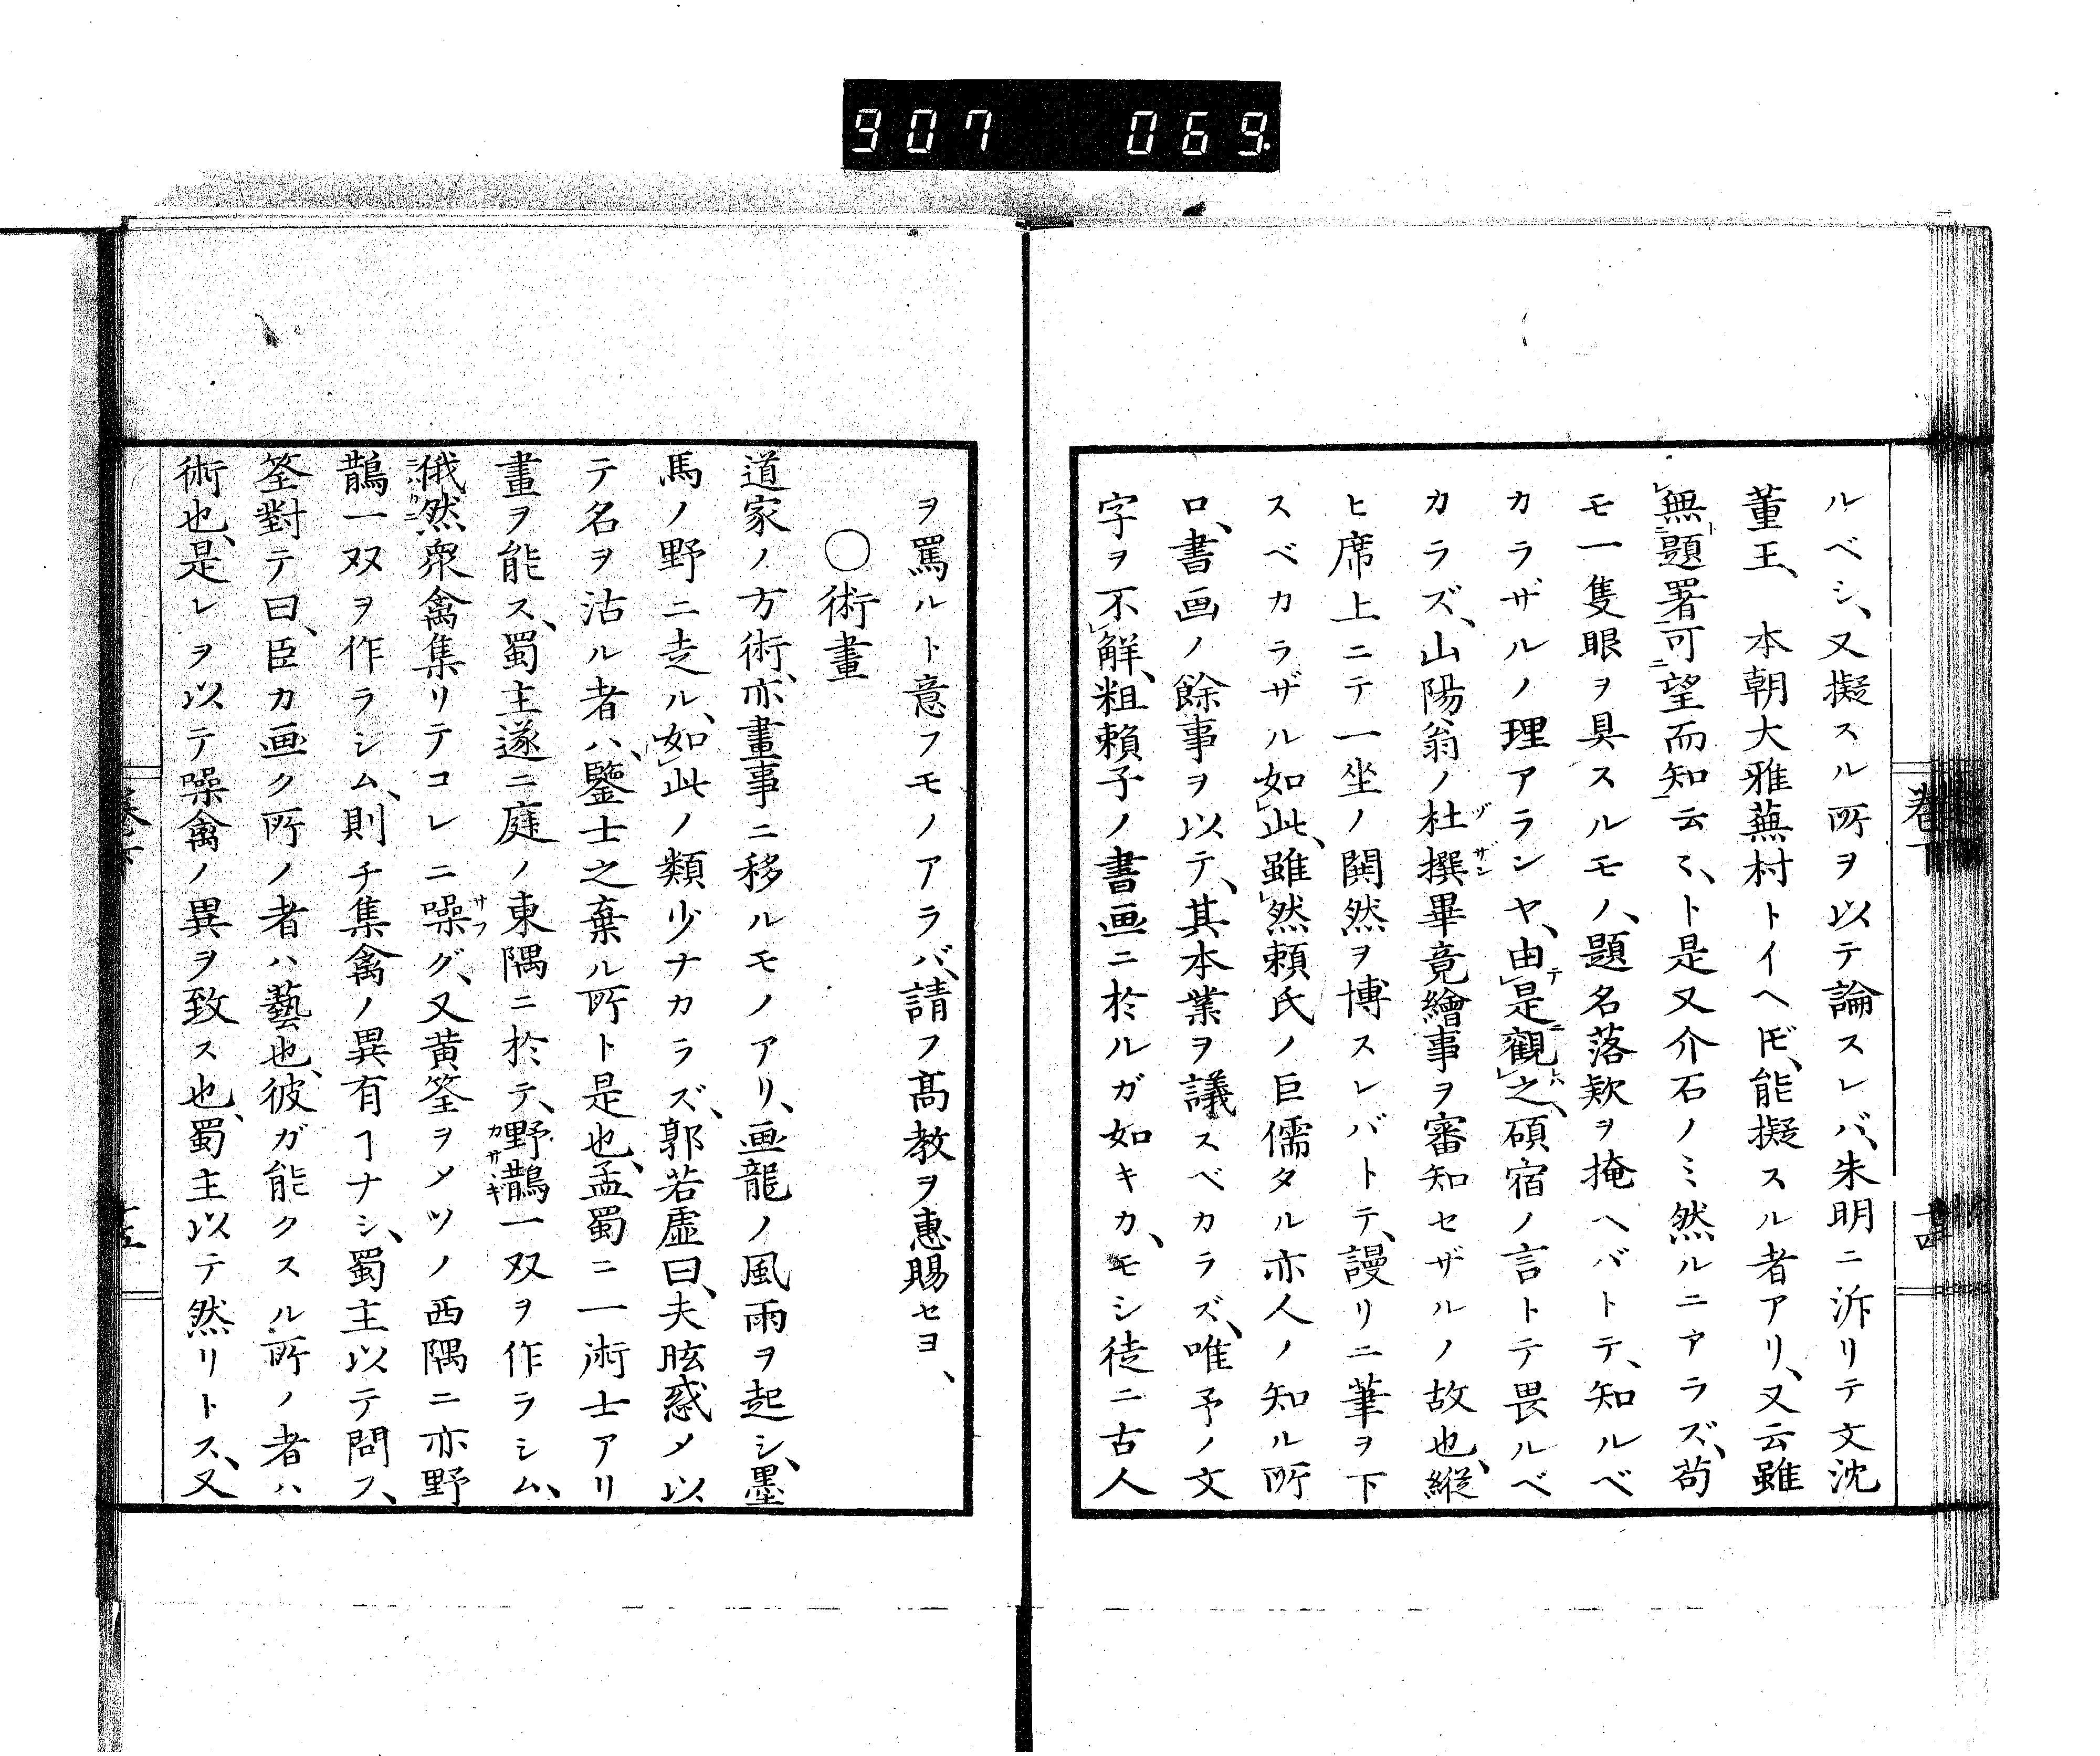 907 069
ルベシ、又擬スル所ヲ以テ論スレバ、朱明ニ泝リテ文沈
董王、本朝大雅蕪村トイヘ𪜈、能擬スル者アリ、又云雖
無題署可望而知云々、ト是又介石ノミ然ルニアラズ、苟
モ一隻眼ヲ具スルモノ、題名落欵ヲ掩ヘバトテ、知ルベ
カラザルノ理アランヤ、由是觀之、碩宿ノ言トテ畏ルベ
カラズ、山陽翁ノ杜撰畢竟繪事ヲ審知セザルノ故也、縦
ヒ席上ニテ一坐ノ閧然ヲ博スレバトテ、謾リニ筆ヲ下
スベカラザル如此、雖然頼氏ノ巨儒タル亦人ノ知ル所
ロ、書画ノ餘事ヲ以テ、其本業ヲ議スベカラズ、唯予ノ文
字ヲ不解、粗頼子ノ書画ニ於ルガ如キカ、モシ徒ニ古人
ヲ罵ルト意フモノアラバ、請フ髙教ヲ惠賜セヨ、
○術畫
道家ノ方術、亦畫事ニ移ルモノアリ、画龍ノ風雨ヲ起シ、墨
馬ノ野ニ走ル、如此ノ類少ナカラズ、郭若虚曰、夫眩惑メ以
テ名ヲ沽ル者ハ、鑒士之棄ル所ト是也、孟蜀ニ一術士アリ
畫ヲ能ス、蜀主遂ニ庭ノ東隅ニ於テ、野鵲一双ヲ作ラシム、
俄然衆禽集リテコレニ噪グ、又黄筌ヲメツノ西隅ニ亦野
鵲一双ヲ作ラシム、則チ集禽ノ異有ヿナシ、蜀主以テ問フ、
筌對テ曰、臣カ画ク所ノ者ハ藝也、彼ガ能クスル所ノ者ハ
術也、是レヲ以テ噪禽ノ異ヲ致ス也、蜀主以テ然リトス、又